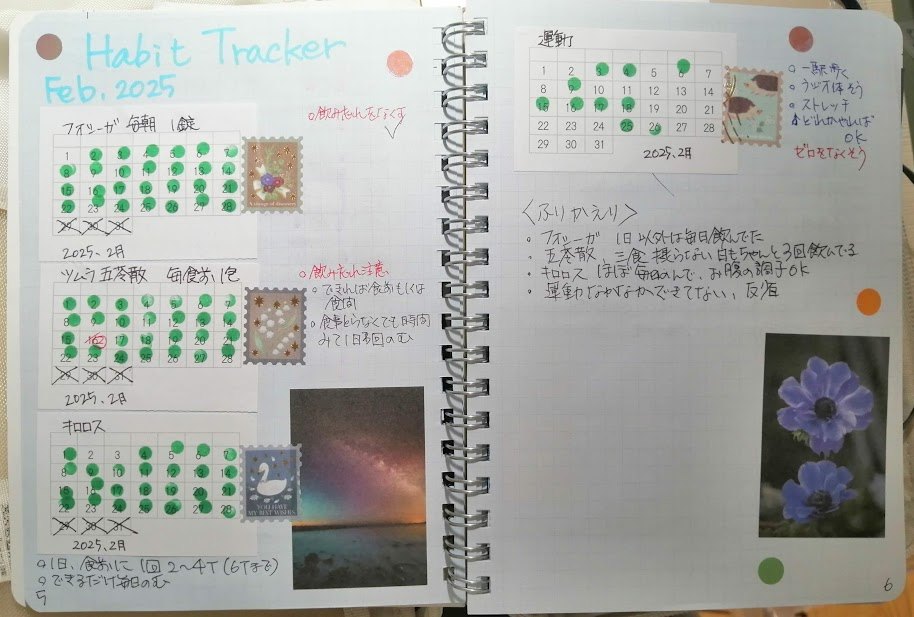 Habit Tracker
Feb. 2025
フォシーガ 毎朝 1錠
1 2 3 4 5 6 7
8 9 10 11 12 13 14
15 16 17 18 19 20 21
22 23 24 25 26 27 28
29 30 31
2025.2月
○飲み忘れをなくす
ツムラ 五苓散 毎食前 1包
1 2 3 4 5 6 7
8 9 10 11 12 13 14
15 16② 17 18 19 20 21
22 23 24 25 26 27 28
29 30 31
2025.2月
○飲み忘れ注意
○できれば食前もしくは
食間
○食事とらなくても時間
みて1日3回のむ
キロロス
1 2 3 4 5 6 7
8 9 10 11 12 13 14
15 16 17 18 19 20 21
22 23 24 25 26 27 28
29 30 31
2025.2月
YOU HAVE
MY BEST WISHES
○1日、食前に 1回 2〜4T (6Tまで)
○できるだけ毎日のむ
5
運動
1 2 3 4 5 6 7
8 9 10 11 12 13 14
15 16 17 18 19 20 21
22 23 24 25 26 27 28
29 30 31
2025.2月
○一駅歩く
○ラジオ体そう
○ストレッチ
↑どれかやれば
OK
ゼロをなくそう
<ふりかえり>
・フォシーガ 1日以外は毎日飲んでた
・五苓散、三食摂らない日もちゃんと3回飲んでる
・キロロス ほぼ毎日のんで、お腹の調子OK
・運動なかなかできてない、反省
6